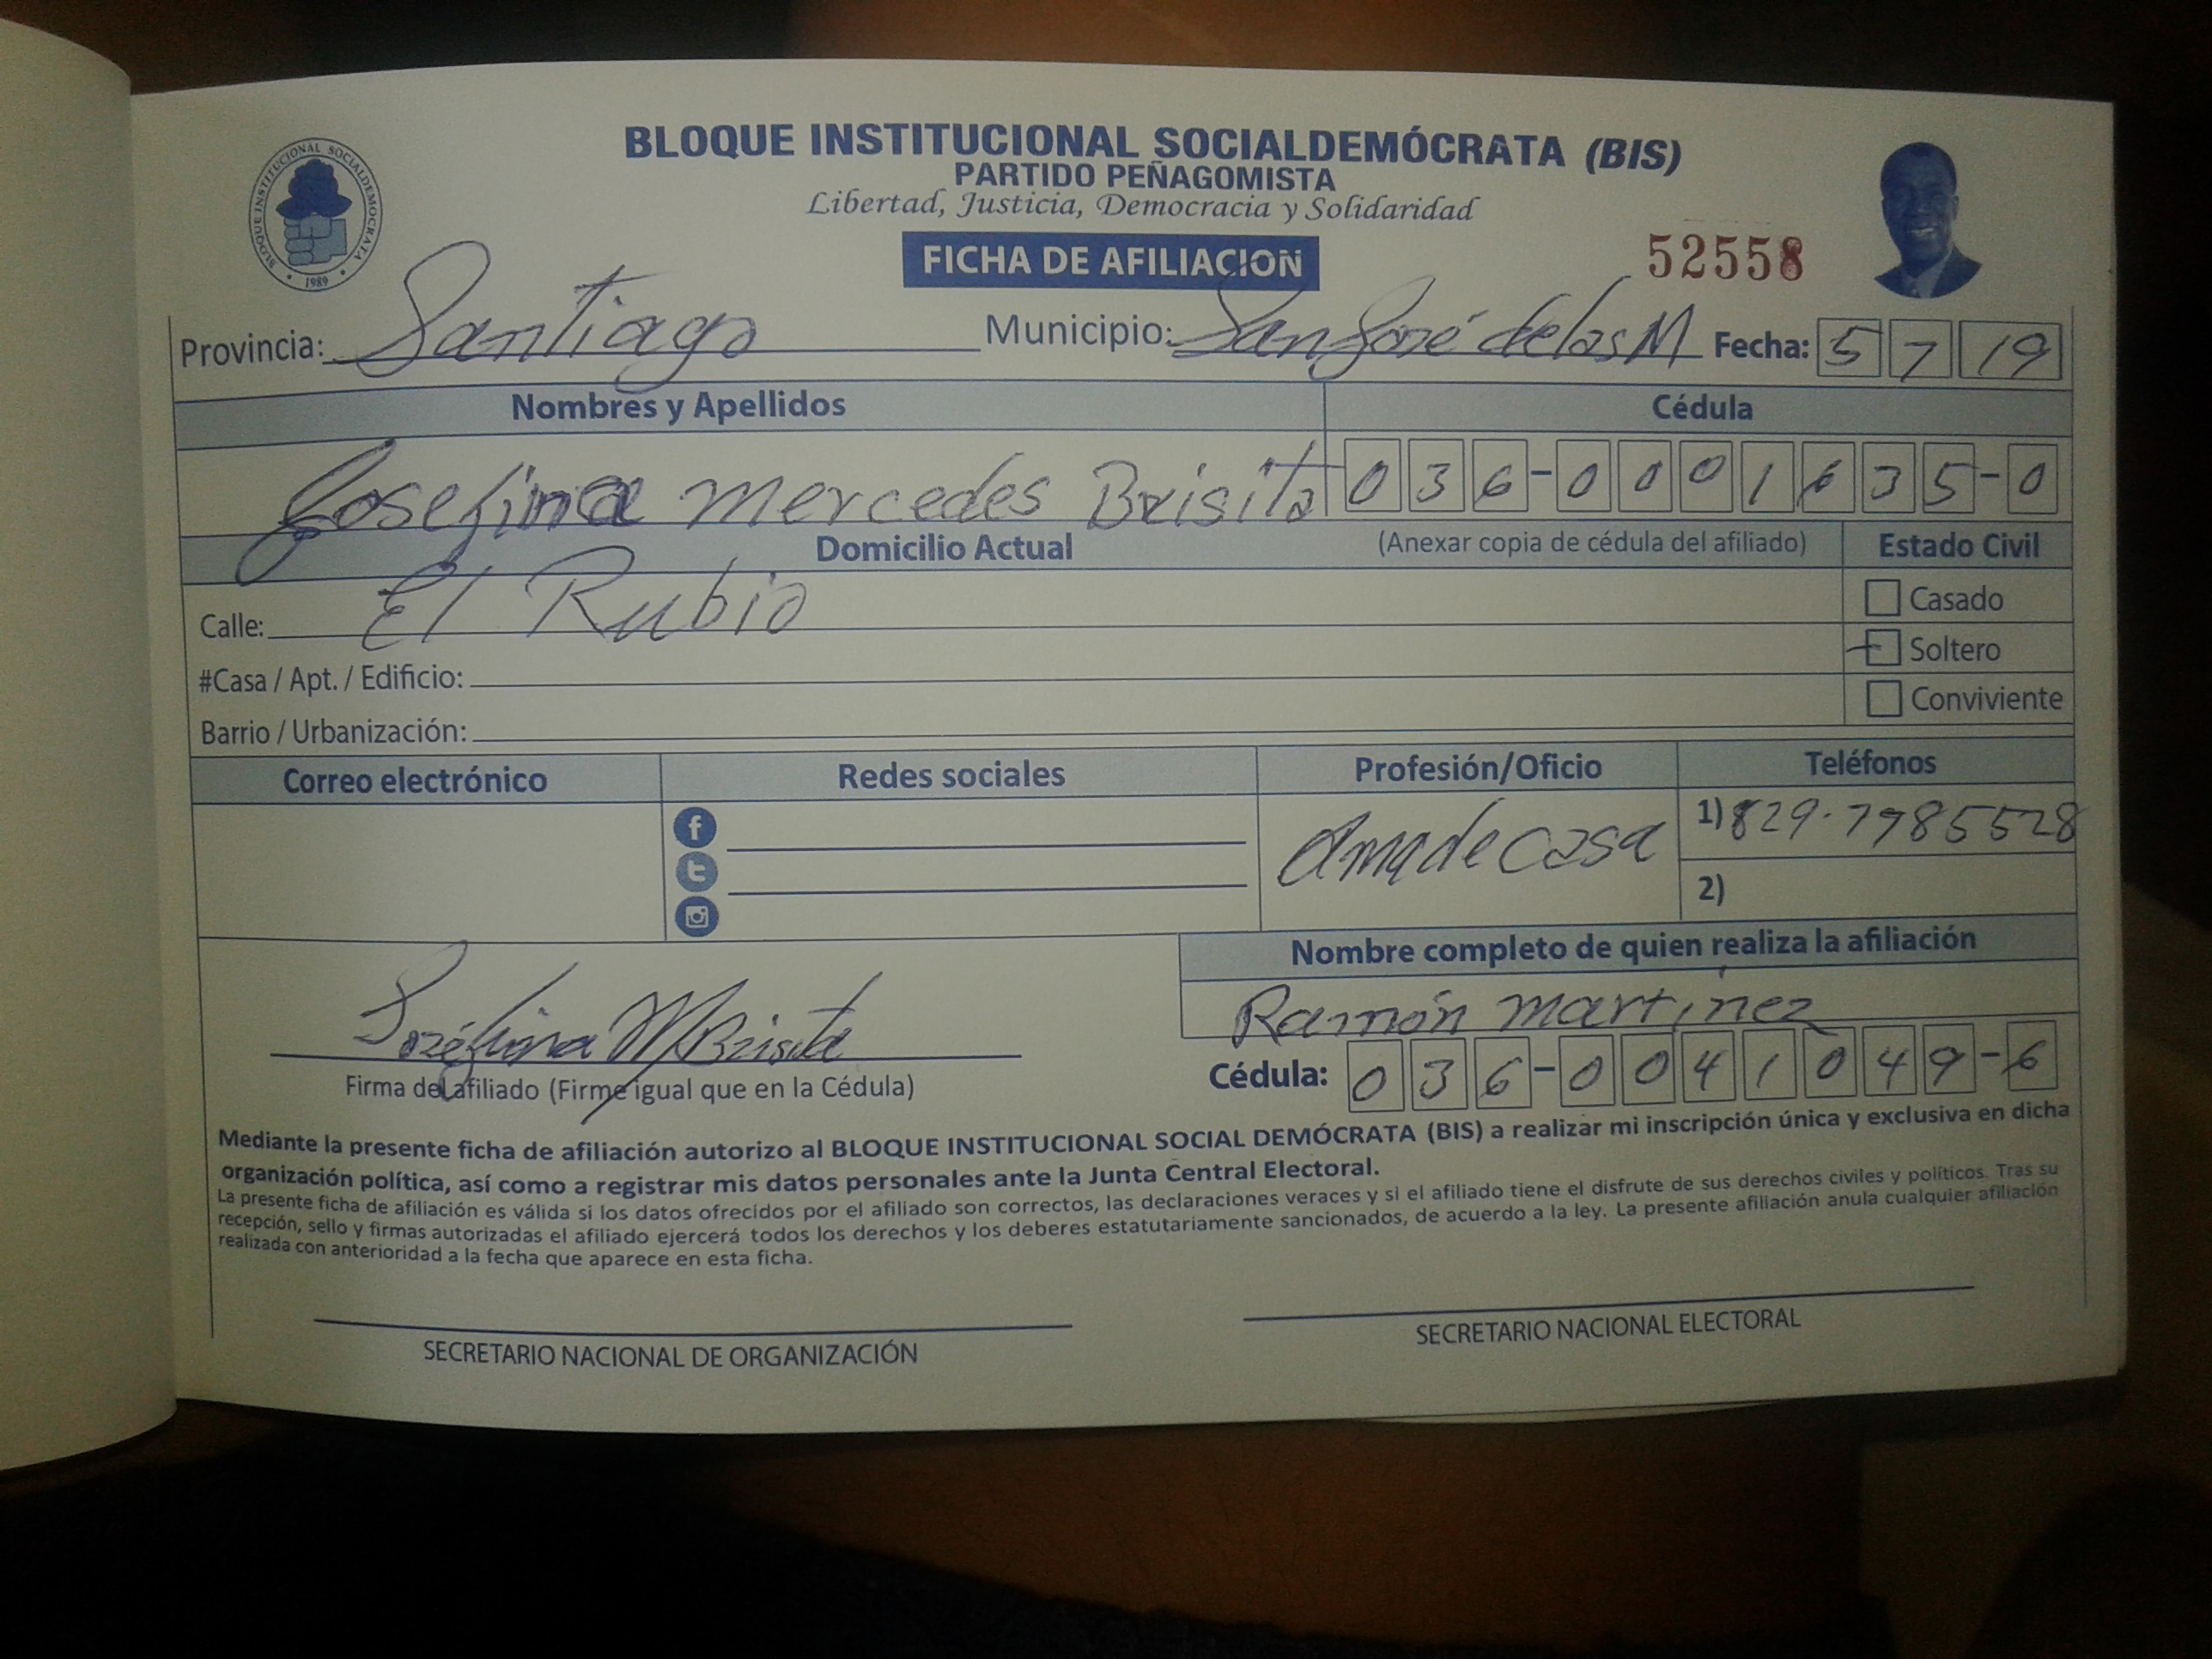 BLOQUE INSTITUCIONAL SOCIALDEMÓCRATA (BIS)
PARTIDO PEÑAGOMISTA
Libertad, Justicia, Democracia y Solidaridad
BLOQUE INSTITUCIONAL SOCIALDEMOCRATA
1989
FICHA DE AFILIACION
52558
Provincia: Santiago Municipio: San José de las M Fecha: 5 7 19
Nombres y Apellidos Cédula
Josefina mercedes Brisita 036-0001635-0
Domicilio Actual (Anexar copia de cédula del afiliado) Estado Civil
Calle: El Rubio
Casado
Soltero
#Casa / Apt. / Edificio:
Conviviente
Barrio / Urbanización:
Correo electrónico Redes sociales Profesión/Oficio Teléfonos
Ama de casa 1) 829-7985528
2)
Nombre completo de quien realiza la afiliación
Ramón martinez
Joséfina M Brisita
Firma del afiliado (Firme igual que en la Cédula) Cédula: 036-0041049-6
Mediante la presente ficha de afiliación autorizo al BLOQUE INSTITUCIONAL SOCIAL DEMÓCRATA (BIS) a realizar mi inscripción única y exclusiva en dicha
organización política, así como a registrar mis datos personales ante la Junta Central Electoral.
La presente ficha de afiliación es válida si los datos ofrecidos por el afiliado son correctos, las declaraciones veraces y si el afiliado tiene el disfrute de sus derechos civiles y políticos. Tras su
recepción, sello y firmas autorizadas el afiliado ejercerá todos los derechos y los deberes estatutariamente sancionados, de acuerdo a la ley. La presente afiliación anula cualquier afiliación
realizada con anterioridad a la fecha que aparece en esta ficha.
SECRETARIO NACIONAL DE ORGANIZACIÓN SECRETARIO NACIONAL ELECTORAL